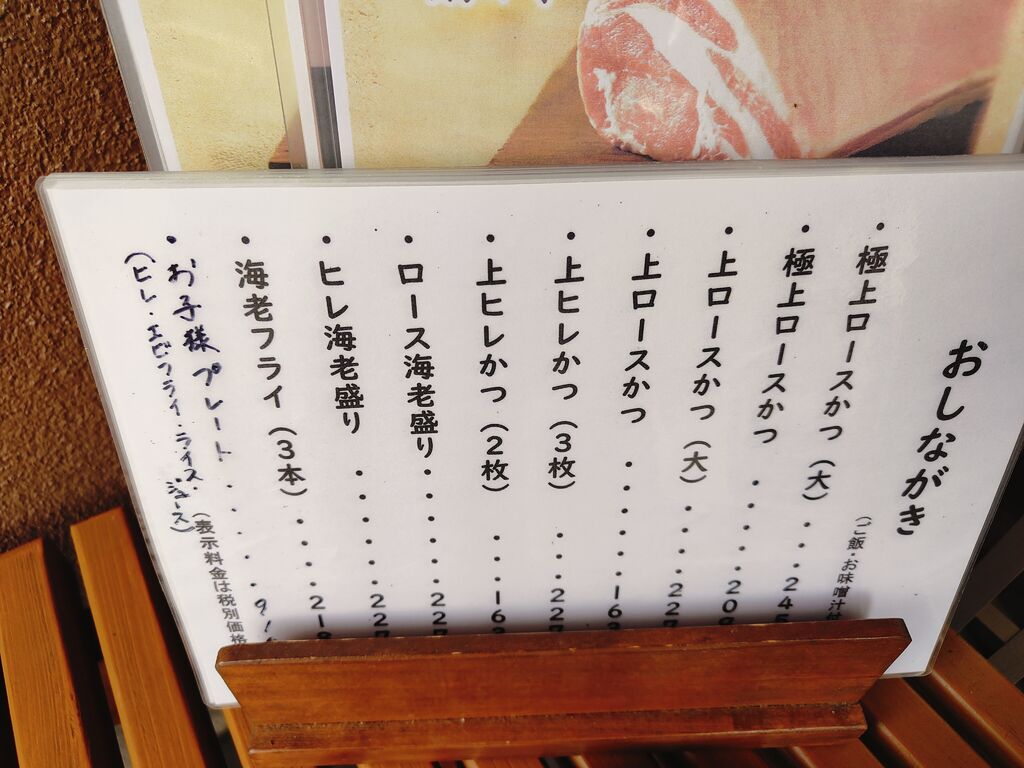 おしながき
（ご飯・お味噌汁
・極上ロースかつ（大）・・・・２４５
・極上ロースかつ・・・・・２０９
・上ロースかつ（大）・・・・・２２７
・上ロースかつ・・・・・・・１６３
・上ヒレかつ（３枚）・・・・２２７
・上ヒレかつ（２枚）・・・・１６３
・ロース海老盛り・・・・・・２２７
・ヒレ海老盛り・・・・・・２２７
・海老フライ（３本）・・・・２１８
・お子様プレート・・・・・９１
（ヒレ・エビフライ・ライス・ジュース）
（表示料金は税別価格